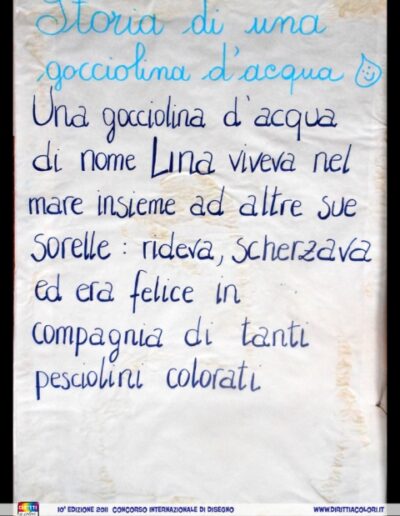 Storia di una
gocciolina d'acqua
Una gocciolina d'acqua
di nome Lina viveva nel
mare insieme ad altre sue
sorelle: rideva, scherzava
ed era felice in
compagnia di tanti
pesciolini colorati
10ª EDIZIONE 2011 CONCORSO INTERNAZIONALE DI DISEGNO
WWW.DIRITTIACOLORI.IT